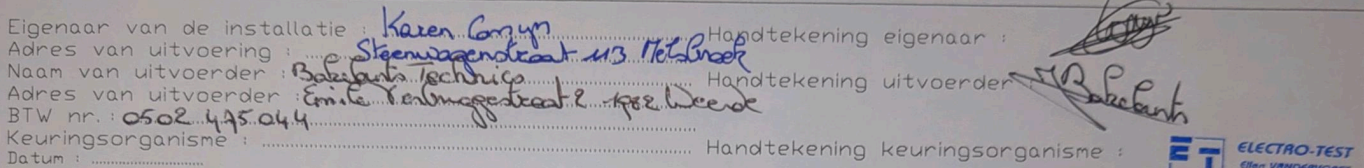 Eigenaar van de installatie : Karen Comyn Handtekening eigenaar :
Adres van uitvoering : Steenwagenstraat 113
Naam van uitvoerder : Bakelants Technics Handtekening uitvoerder Bakelants
Adres van uitvoerder : Emile 2 1982 Weerde
BTW nr. : 0502.475.044
Keuringsorganisme : Handtekening keuringsorganisme :
Datum :
ET ELECTRO-TEST